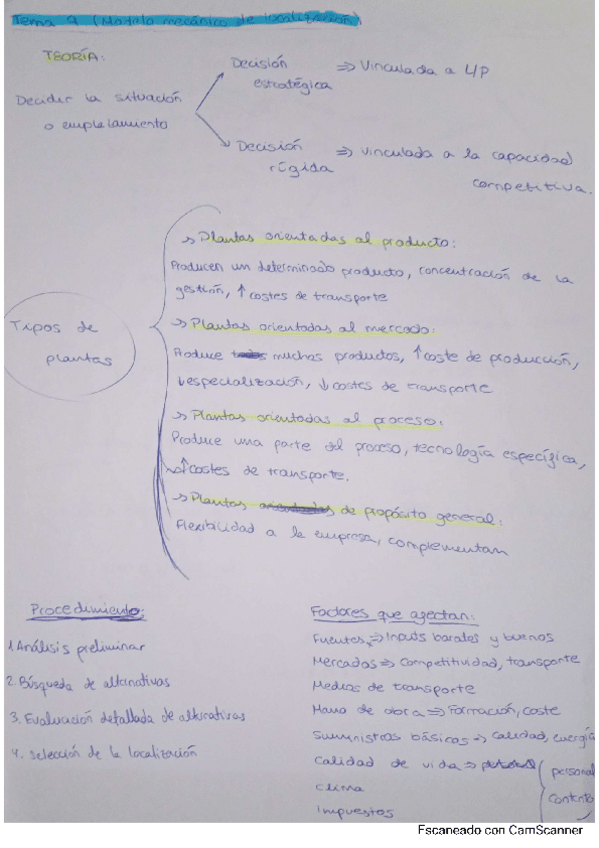 Tema 9 (Modelo mecánico de localización)
TEORÍA:
Decidir la situación
o emplelamiento
Decisión
estratégica
⇒ Vinculada a L/P
Decisión
rígida
⇒ Vinculada a la capacidad
competitiva.
Tipos de
plantas
→ Plantas orientadas al producto:
Producen un determinado producto, concentración de la
gestión, ↑costes de transporte
→ Plantas orientadas al mercado:
Produce muchos productos, ↑coste de producción,
↓especialización, ↓costes de transporte
→ Plantas orientadas al proceso:
Produce una parte del proceso, tecnología específica,
↑costes de transporte.
→ Plantas de propósito general:
Flexibilidad a la empresa, complementan
Procedimiento:
1. Análisis preliminar
2. Búsqueda de alternativas
3. Evaluación detallada de alternativas
4. Selección de la localización
Factores que afectan:
Fuentes ⇒ Inputs baratos y buenos
Mercados ⇒ Competitividad, transporte
Medios de transporte
Mano de obra ⇒ Formación, coste
Suministros básicos ⇒ Calidad, energía
Calidad de vida ⇒
personal
Clima
Impuestos
Escaneado con CamScanner